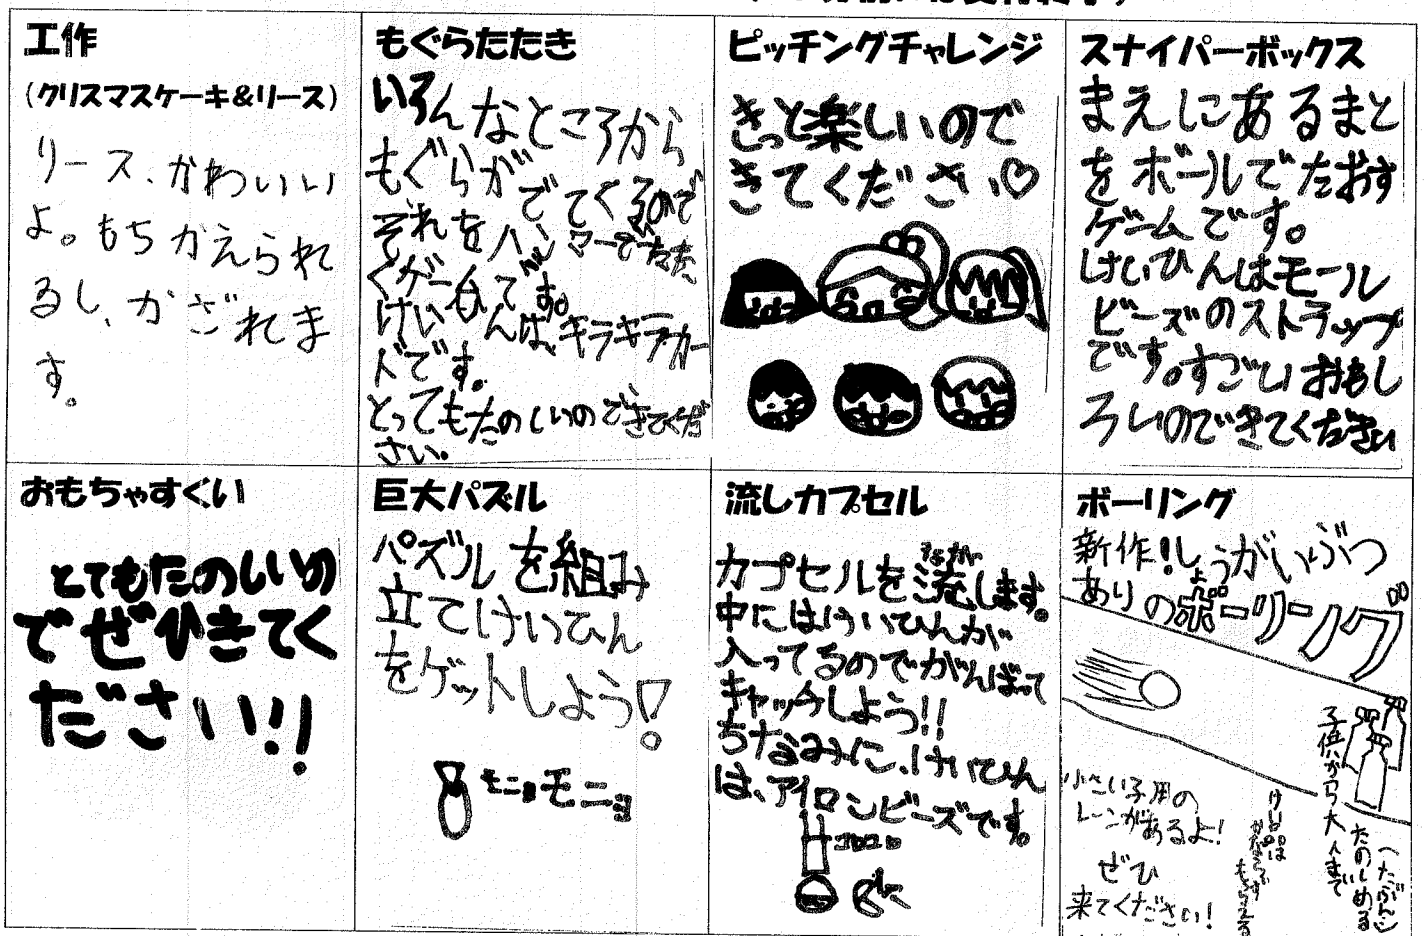 工作
(クリスマスケーキ&リース)
リース、かわいい
よ。もちかえられ
るし、かざれま
す。
もぐらたたき
いろんなところから
もぐらがでてくるので
それをハンマーでたた
くゲームです。
けいひんは、キラキラカー
ドです。
とってもたのしいのできてくだ
さい。
ピッチングチャレンジ
きっと楽しいので
きてください♡
スナイパーボックス
まえにあるまと
をボールでたおす
ゲームです。
けいひんはモール
ビーズのストラップ
です。すごいおもし
ろいのできてください
おもちゃすくい
とてもたのしいの
でぜひきてく
ださい!!
巨大パズル
パズルを組み
立てけいひん
をゲットしよう!
モニョモニョ
流しカプセル
ながし
カプセルを流します。
中にはけいひんが
入ってるのでがんばって
キャッチしよう!!
ちなみに、けいひん
は、アイロンビーズです。
コロコロ
ボーリング
新作!しょうがいぶつ
ありのボーリング
子供から大人まで
たのしめる
(たぶん)
小さい子用の
レーンがあるよ!
ぜひ
来てください!
けい品は
かならず
もらえる